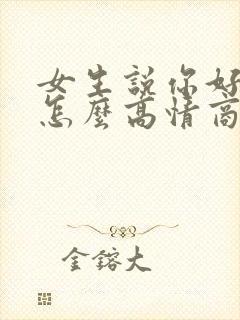 女生説你好
怎麼高情商
金鎔大